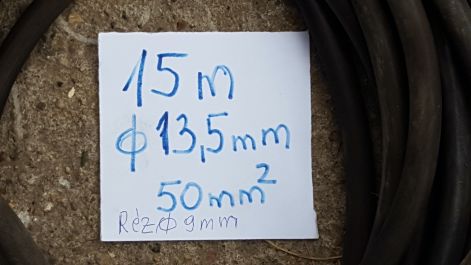 15 m
φ 13,5 mm
50 mm²
Réz φ 9 mm